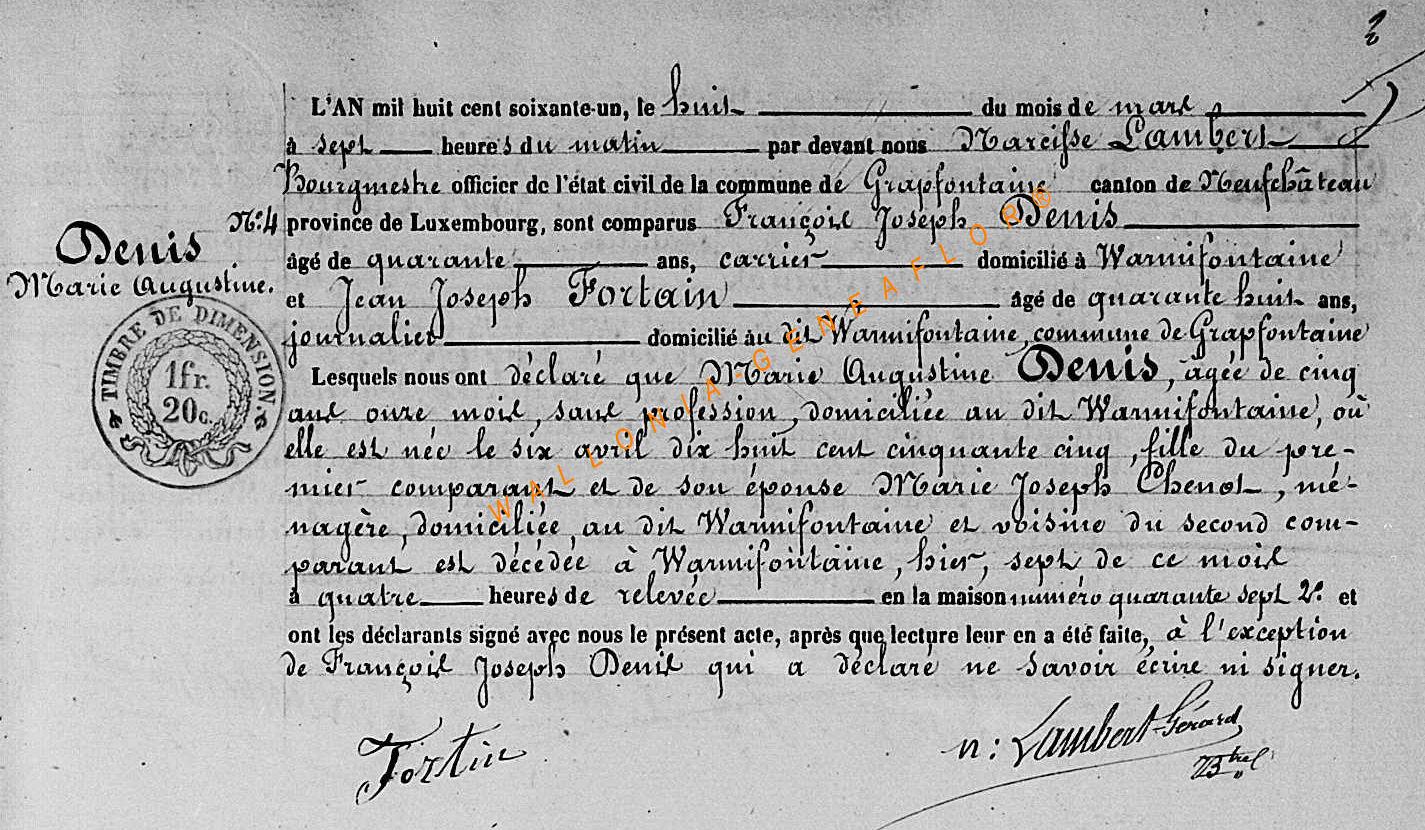 2
L'AN mil huit cent soixante-un, le huit du mois de mars
à sept heures du matin par devant nous Narcisse Lambert
Bourgmestre officier de l'état civil de la commune de Grapfontaine canton de Neufchâteau
N°: 4 province de Luxembourg, sont comparus François Joseph Denis
Denis
Marie Augustine.
âgé de quarante ans, carrier domicilié à Warmifontaine
et Jean Joseph Fortain âgé de quarante huit ans,
journalier domicilié au dit Warmifontaine, commune de Grapfontaine
TIMBRE DE DIMENSION
1 fr.
20 c.
Lesquels nous ont déclaré que Marie Augustine Denis, agée de cinq
ans onze mois, sans profession, domiciliée au dit Warmifontaine, où
elle est née le six avril dix huit cent cinquante cinq, fille du pre-
mier comparant et de son épouse Marie Joseph Chenot, mé-
nagère, domiciliée, au dit Warmifontaine et voisine du second com-
parant est décédée à Warmifontaine, hier, sept de ce mois
à quatre heures de relevée en la maison numéro quarante sept 2° et
ont les déclarants signé avec nous le présent acte, après que lecture leur en a été faite, à l'exception
de François Joseph Denis qui a déclaré ne savoir écrire ni signer.
Fortin
n: Lambert-Gérard
Btre
WALLONIA-GENEAFLOR®